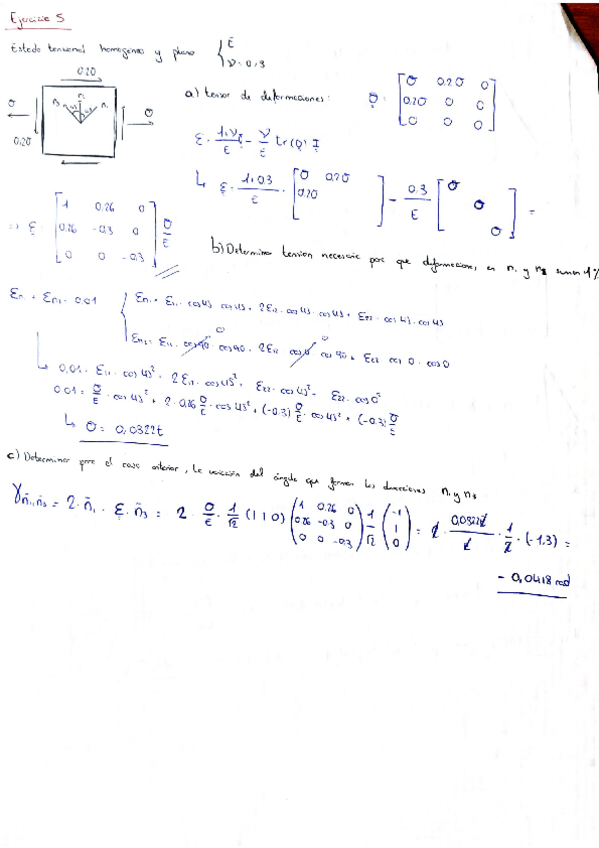 Ejercicio 5
Estado tensional homogeneo y plano { E
ν = 0,3
0,2σ
n₃ n₂ n₁
σ σ
0,2σ
a) tensor de deformaciones:
σ = [σ 0.2σ 0
0.2σ 0 0
0 0 0]
ε = 1+ν/E σ - ν/E tr(σ) I
↳ ε = 1+0.3/E · [σ 0.2σ
0.2σ ] - 0.3/E [σ
σ
σ] =
=> ε = [1 0,26 0
0,26 -0,3 0
0 0 -0,3] σ/E
b) Determinar tension necesaria para que deformaciones en n₁ y n₂ sumen 1%
εn₁ + εn₂ = 0.01 { εn₁ = ε₁₁ · cos45 · cos45 + 2ε₁₂ · cos45 · cos45 + ε₂₂ · cos45 · cos45
εn₂ = ε₁₁ · cos90 · cos90 + 2ε₁₂ cos0 cos90 + ε₂₂ cos0 · cos0
0 0
↳ 0,01 = ε₁₁ · cos45² + 2ε₁₂ · cos45² + ε₂₂ · cos45² + ε₂₂ · cos0²
0.01 = σ/E · cos45² + 2 · 0.26 σ/E · cos45² + (-0.3) σ/E · cos45² + (-0.3) σ/E
↳ σ = 0,0322E
c) Determinar para el caso anterior, la variación del ángulo que forman las direcciones n₁ y n₃
γn̄₁,n̄₃ = 2 · n̄₁ · ε · n̄₃ = 2 · σ/E · 1/√2 (1 1 0) (1 0.26 0
0.26 -0.3 0
0 0 -0.3) 1/√2 (-1
1
0) = 2 · 0,0322E/E · 1/2 · (-1,3) =
- 0,0418 rad